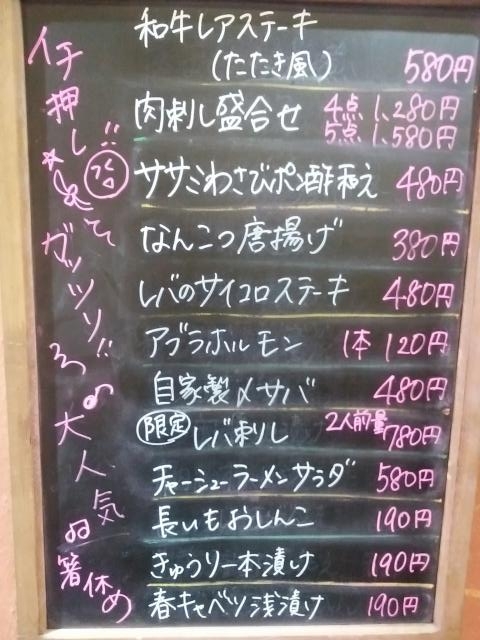 和牛レアステーキ
(たたき風) 580円
肉刺し盛合せ 4点 1,280円
5点 1,580円
ササミわさびポン酢和え 480円
なんこつ唐揚げ 380円
レバのサイコロステーキ 480円
アブラホルモン 1本 120円
自家製〆サバ 480円
限定 レバ刺し 2人前量 780円
チャーシューラーメンサラダ 580円
長いもおしんこ 190円
きゅうり一本漬け 190円
春キャベツ浅漬け 190円
イチ押し!!
ガッツリ!!
大人気
箸休め